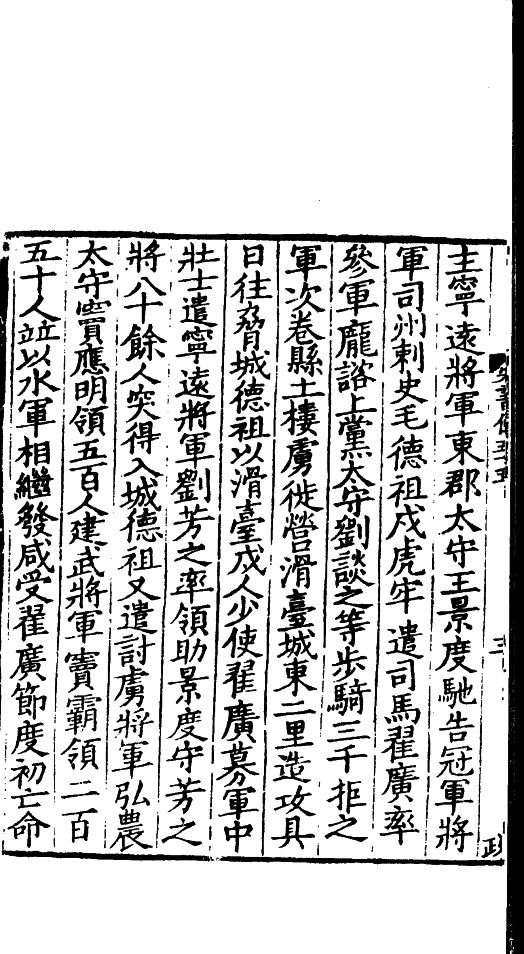 主寧遠將軍東郡太守王景度馳告冠軍將
軍司州刺史毛德祖戍虎牢遣司馬翟廣率
參軍龐諮上黨太守劉談之等步騎三千拒之
軍次卷縣土樓虜徙營滑臺城東二里造攻具
日往脅城德祖以滑臺戍人少使翟廣募軍中
壯士遣寧遠將軍劉芳之率領助景度守芳之
將八十餘人突得入城德祖又遣討虜將軍弘農
太守竇應明領五百人建武將軍竇霸領二百
五十人竝以水軍相繼發咸受翟廣節度初亡命